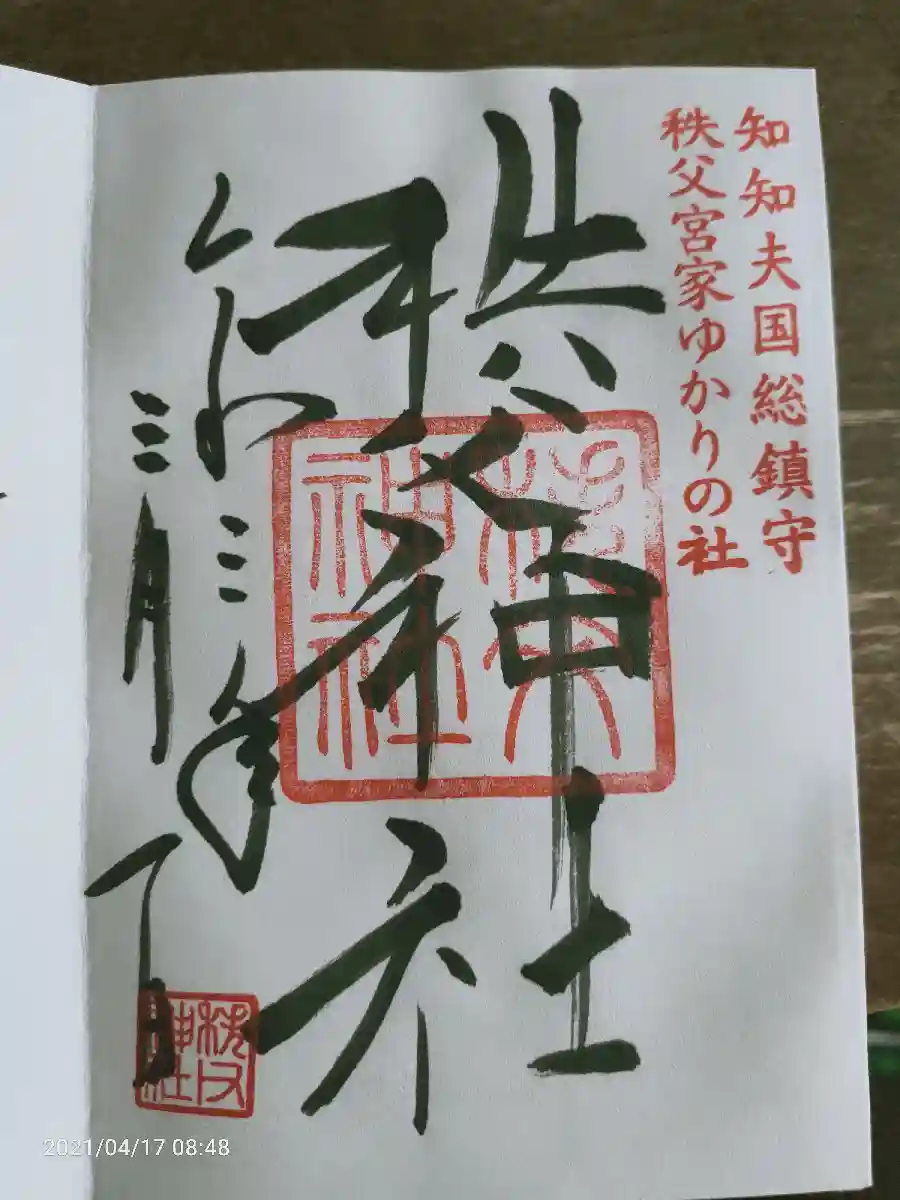 知知夫国総鎮守
秩父宮家ゆかりの社
秩父神社
秩父神社
令和三年
三月
日
秩父神社
2021/04/17 08:48